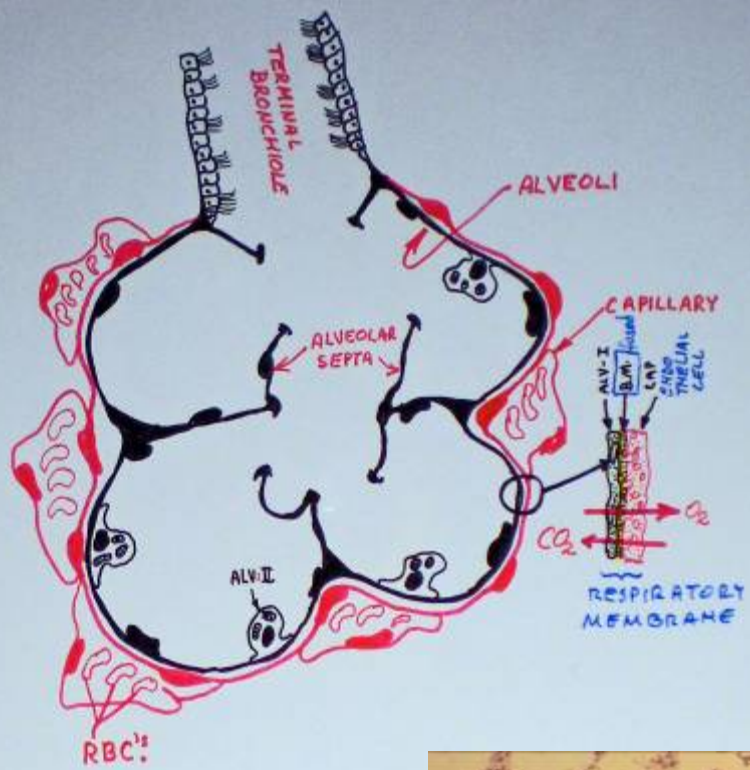 TERMINAL
BRONCHIOLE
ALVEOLI
CAPILLARY
ALVEOLAR
SEPTA
ALV-I
B.M. fused
CAP
ENDO
THELIAL
CELL
O₂
CO₂
RESPIRATORY
MEMBRANE
ALV:II
RBC's.